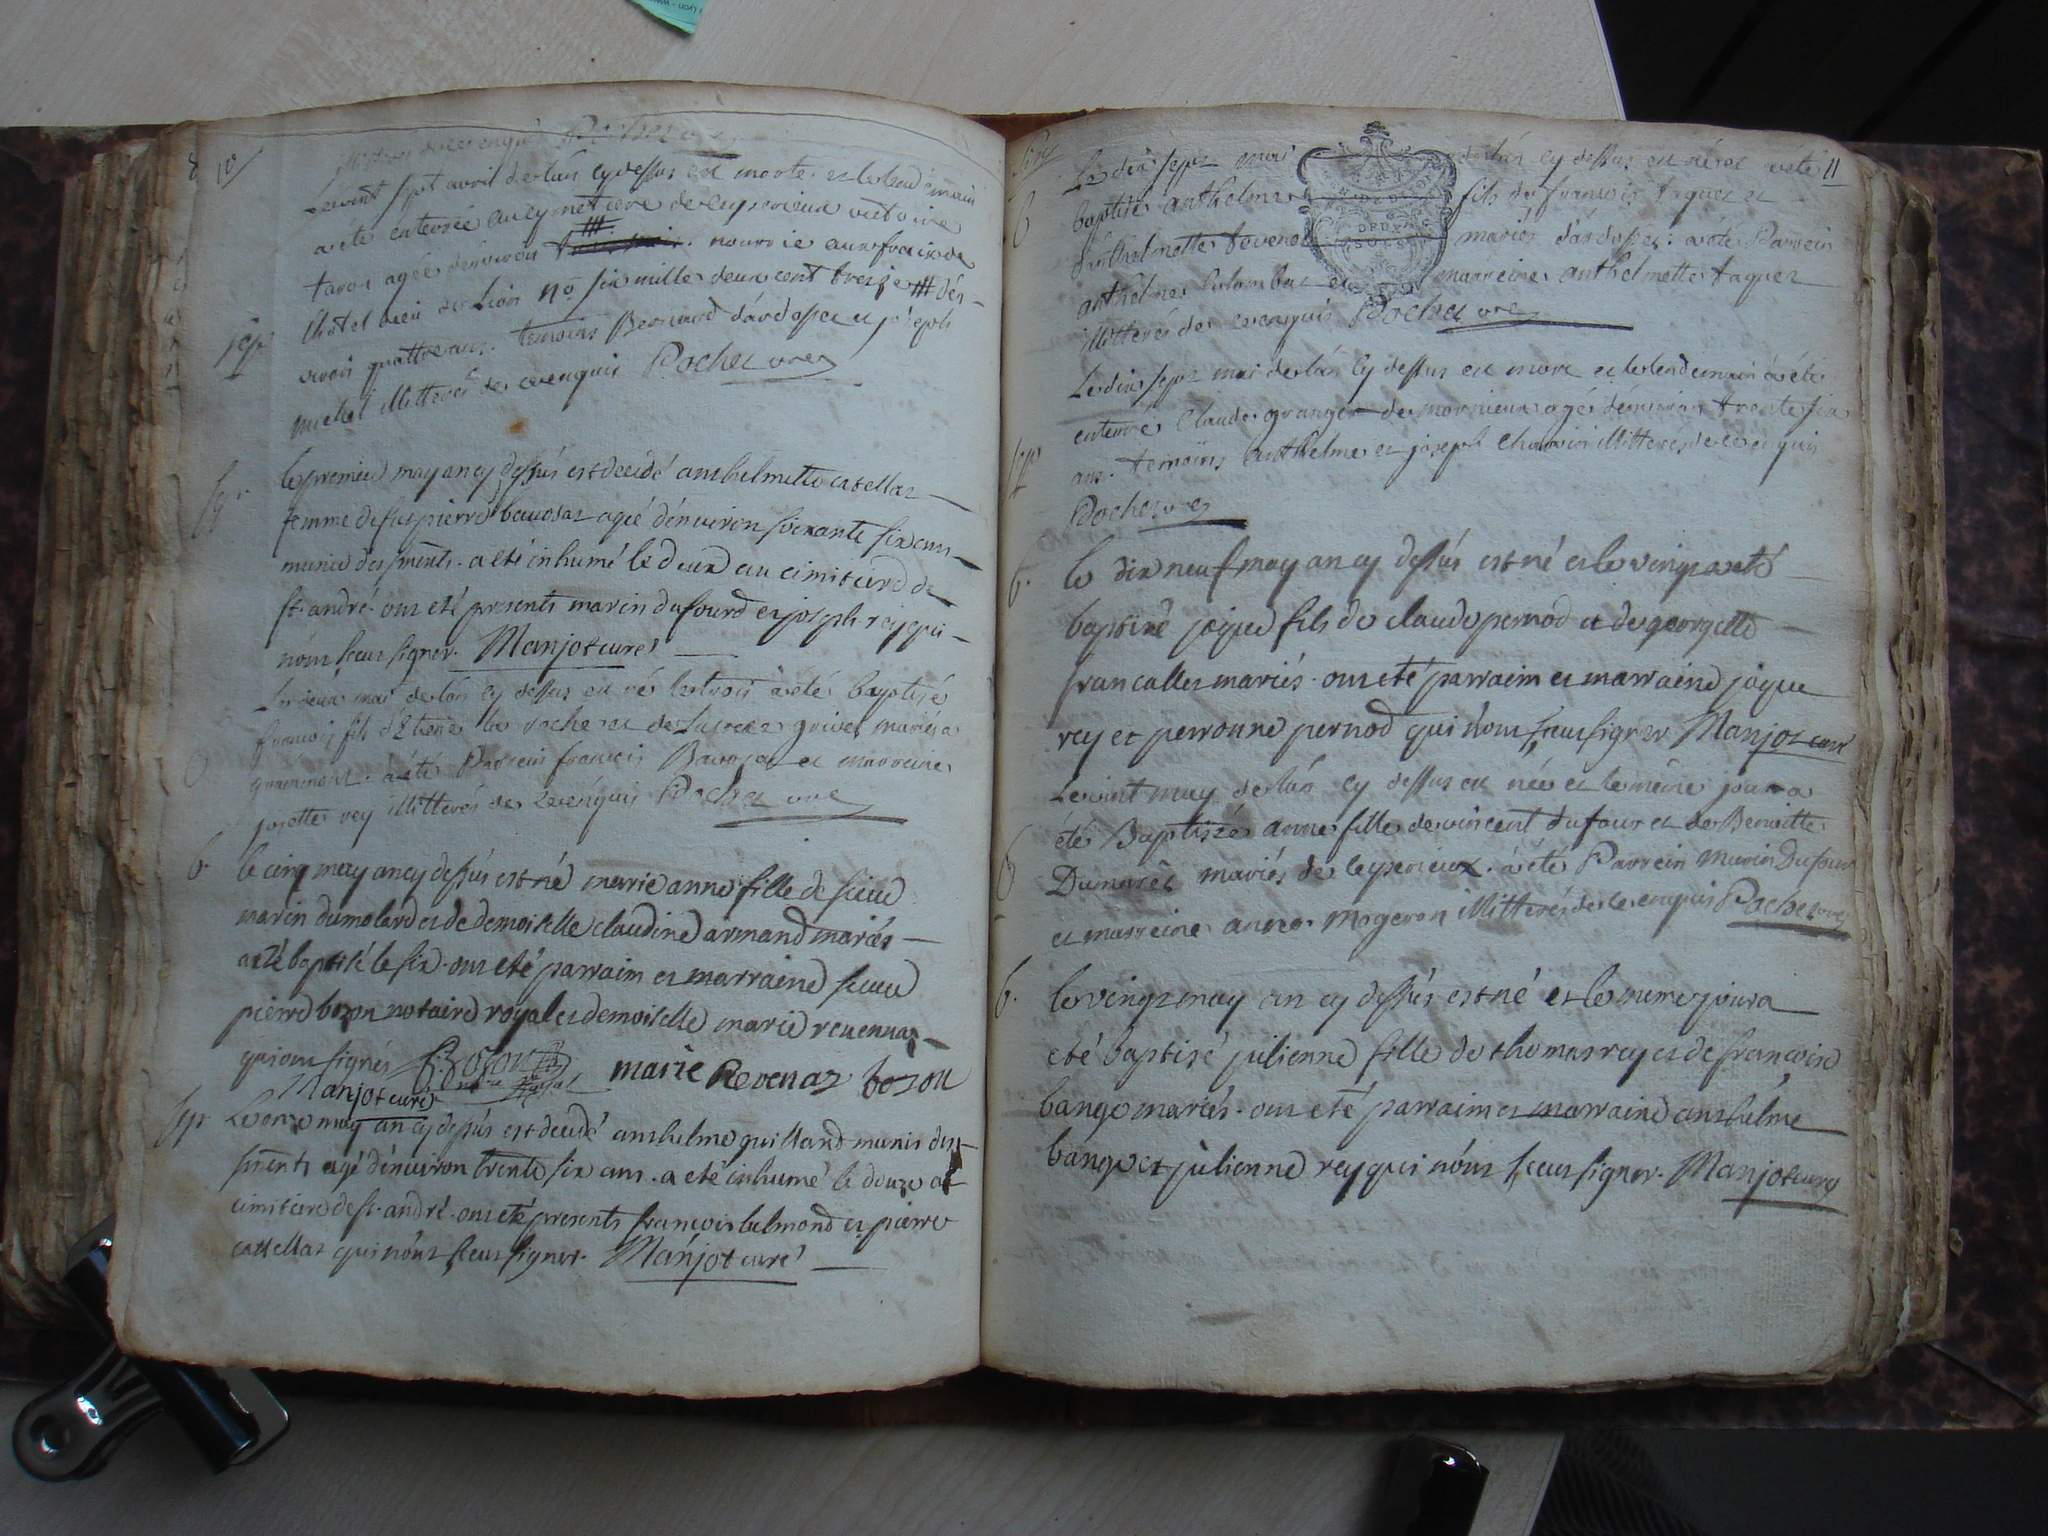 10
illitérés de ce enquis Pochet vre
Le vint sept avril de lán cy dessus est morte et le lendemain
a eté enterrée au cymetiere de leyserieux victoire
agée denviron nourrie aux fraix de
l'hôtel dieu de Lion no six mille deux cent treize # dén-
viron quattre ans. temoins Bernard dárdosset et joseph
michel illitterés de ce enquis Pochet vre
sep.
le premier may an cy dessús est decidé anthelmette catellaz
femme de feu pierre bavosaz agié dénviron soixante six ans
munie des sments. a eté inhumé le deux au cimitiere de
st. andré. ont eté presents marin dufourd et joseph rey qui
nónt sceus signer. Manjot curé
Le deux mai de lán cy dessus est né le trois a eté baptisé
francois fils d'Etiene la roche et de Lucrece grivet mariés a
grammont. a eté Parrein francois Bavosa et marreine
josette rey illitterés de ce enquis Pochet vre
b.
le cinq may an cy dessús est né marie anne fille de sieur
marin dumolard et de demoiselle claudine armand mariés
a eté baptisé le six. ont eté parraim et marraine sieur
pierre bozon notaire royal et demoiselle marie revennaz
qui ont signés Bozon marie Revenaz bozon
Manjot curé
sep.
Le onze may an cy dessús est decidé anthelme guilland munis des
sments agé dénviron trente six ans. a eté inhumé le douze au
cimitiere de st. andré. ont eté presents francois belmond et pierre
catellaz qui nónt sceus signer. Manjot curé
11
Le dix sept mai de lán cy dessus est né et a eté
baptisé anthelme fils de francois taquet et
anthelmette tevenet mariés dárdosset. a eté Parrein
anthelme Colombat et marreine anthelmette taquet
illitterés de ce enquis Pochet vre
Le dix sept mai de lán cy dessus est mort et le lendemain a eté
enterré Claude granger de mornieux agé dénviron trente six
ans. temoins anthelme et joseph illitterés de ce enquis
Pochet vre
b.
le dix neuf may an cy dessús est né et le vingt a eté
baptisé joque fils de claude pernod et de georgette
francallet mariés. ont eté parraim et marraine joque
rey et perronne pernod qui nónt sceus signer Manjot curé
Le vint may de lán cy dessus est née et le même jour a
été Baptisée anne fille de vincent dufour et de Benoitte
Dumarêt mariés de leyserieux. a eté Parrein Marin Dufour
et marreine anne Mogeron illitterés de ce enquis Pochet vre
b.
le vingt may an cy dessús est né et le meme jour a
eté baptisé julienne fille de thomas rey et de francoise
bange mariés. ont eté parraim et marraine anthelme
bange et julienne rey qui nónt sceus signer. Manjot curé